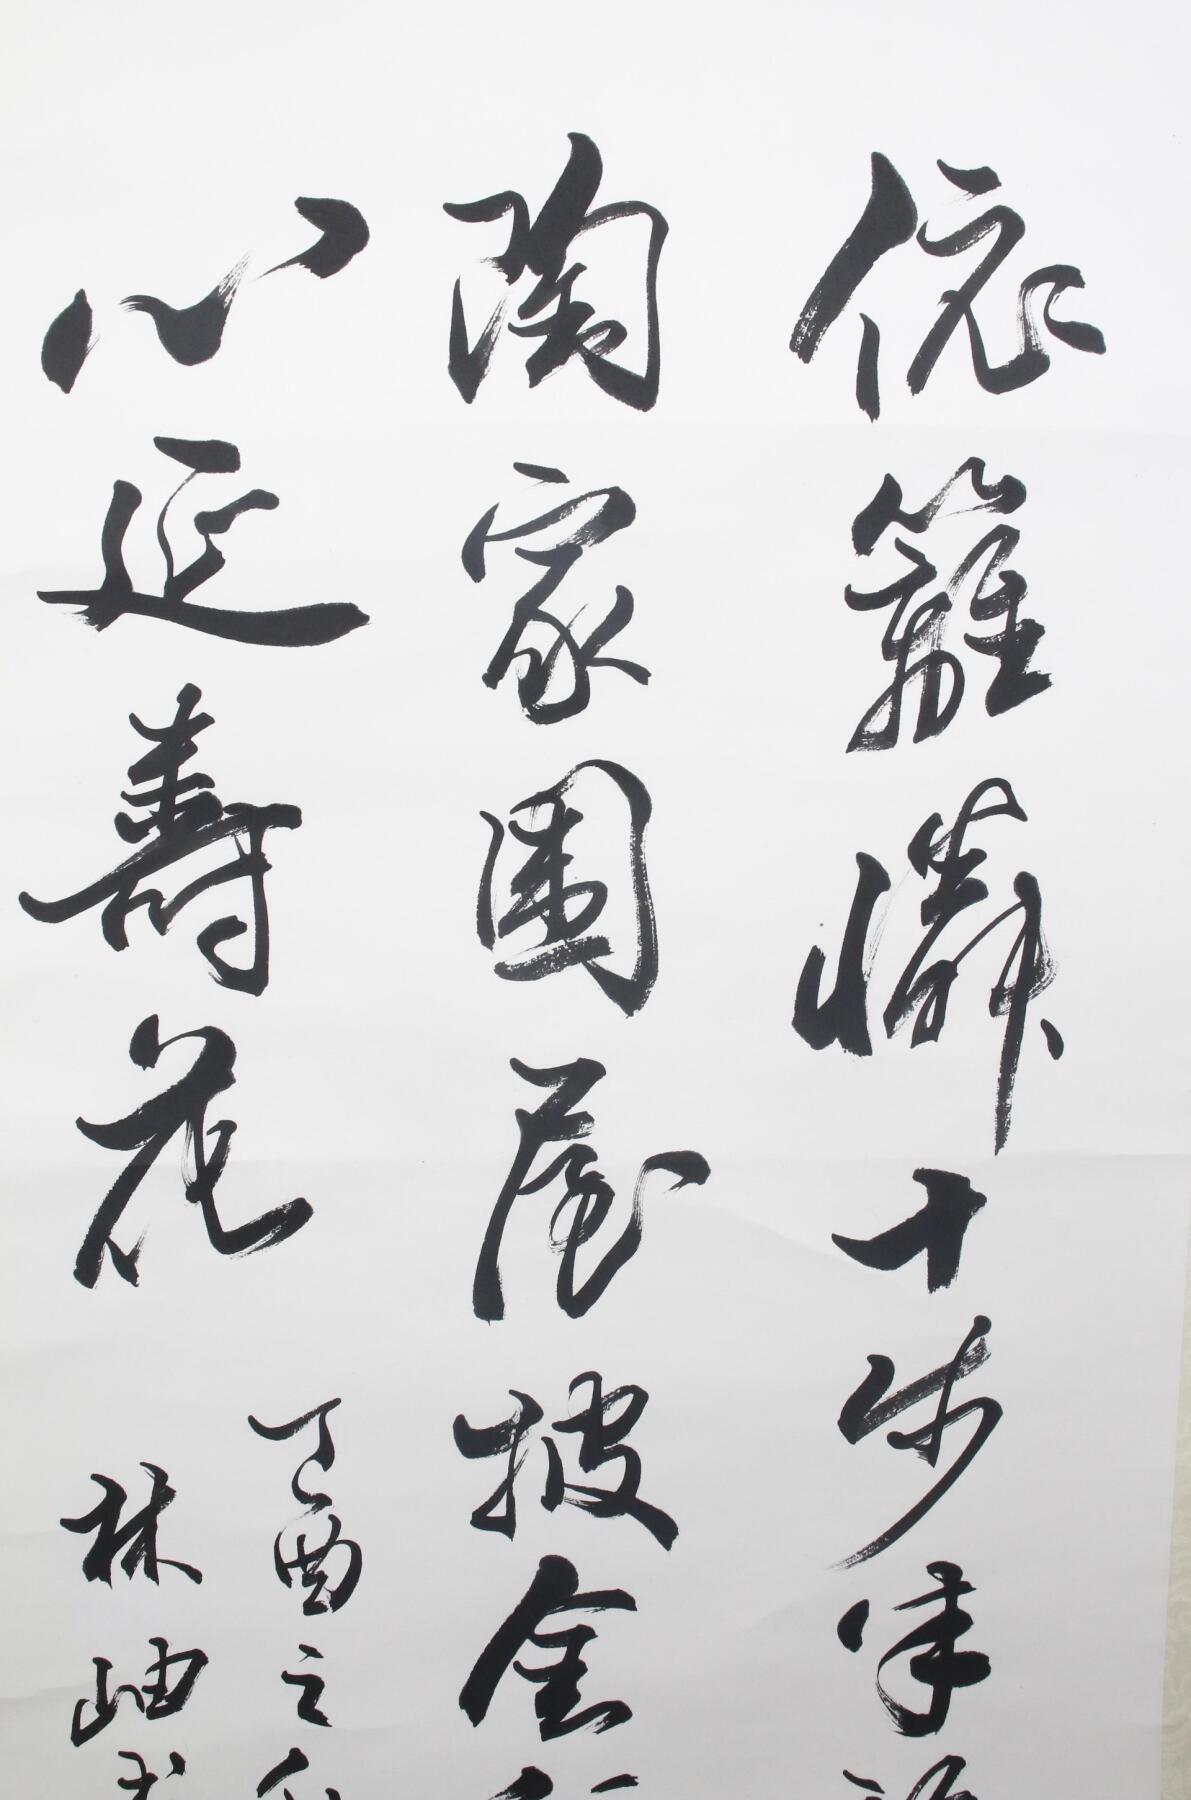 依籬憐十步
陶家園屋披金
心延壽花
丁酉之
林岫